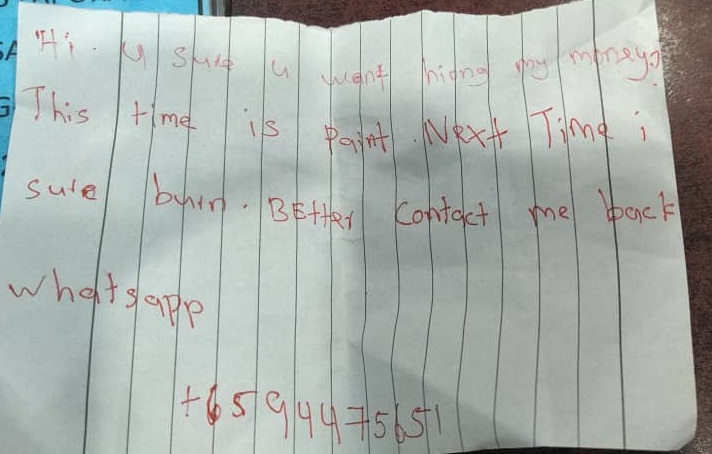 Hi. u sure u want hiong my money?
This time is paint. Next Time i
sure burn. BEtter contact me back
whatsapp
+6594475651